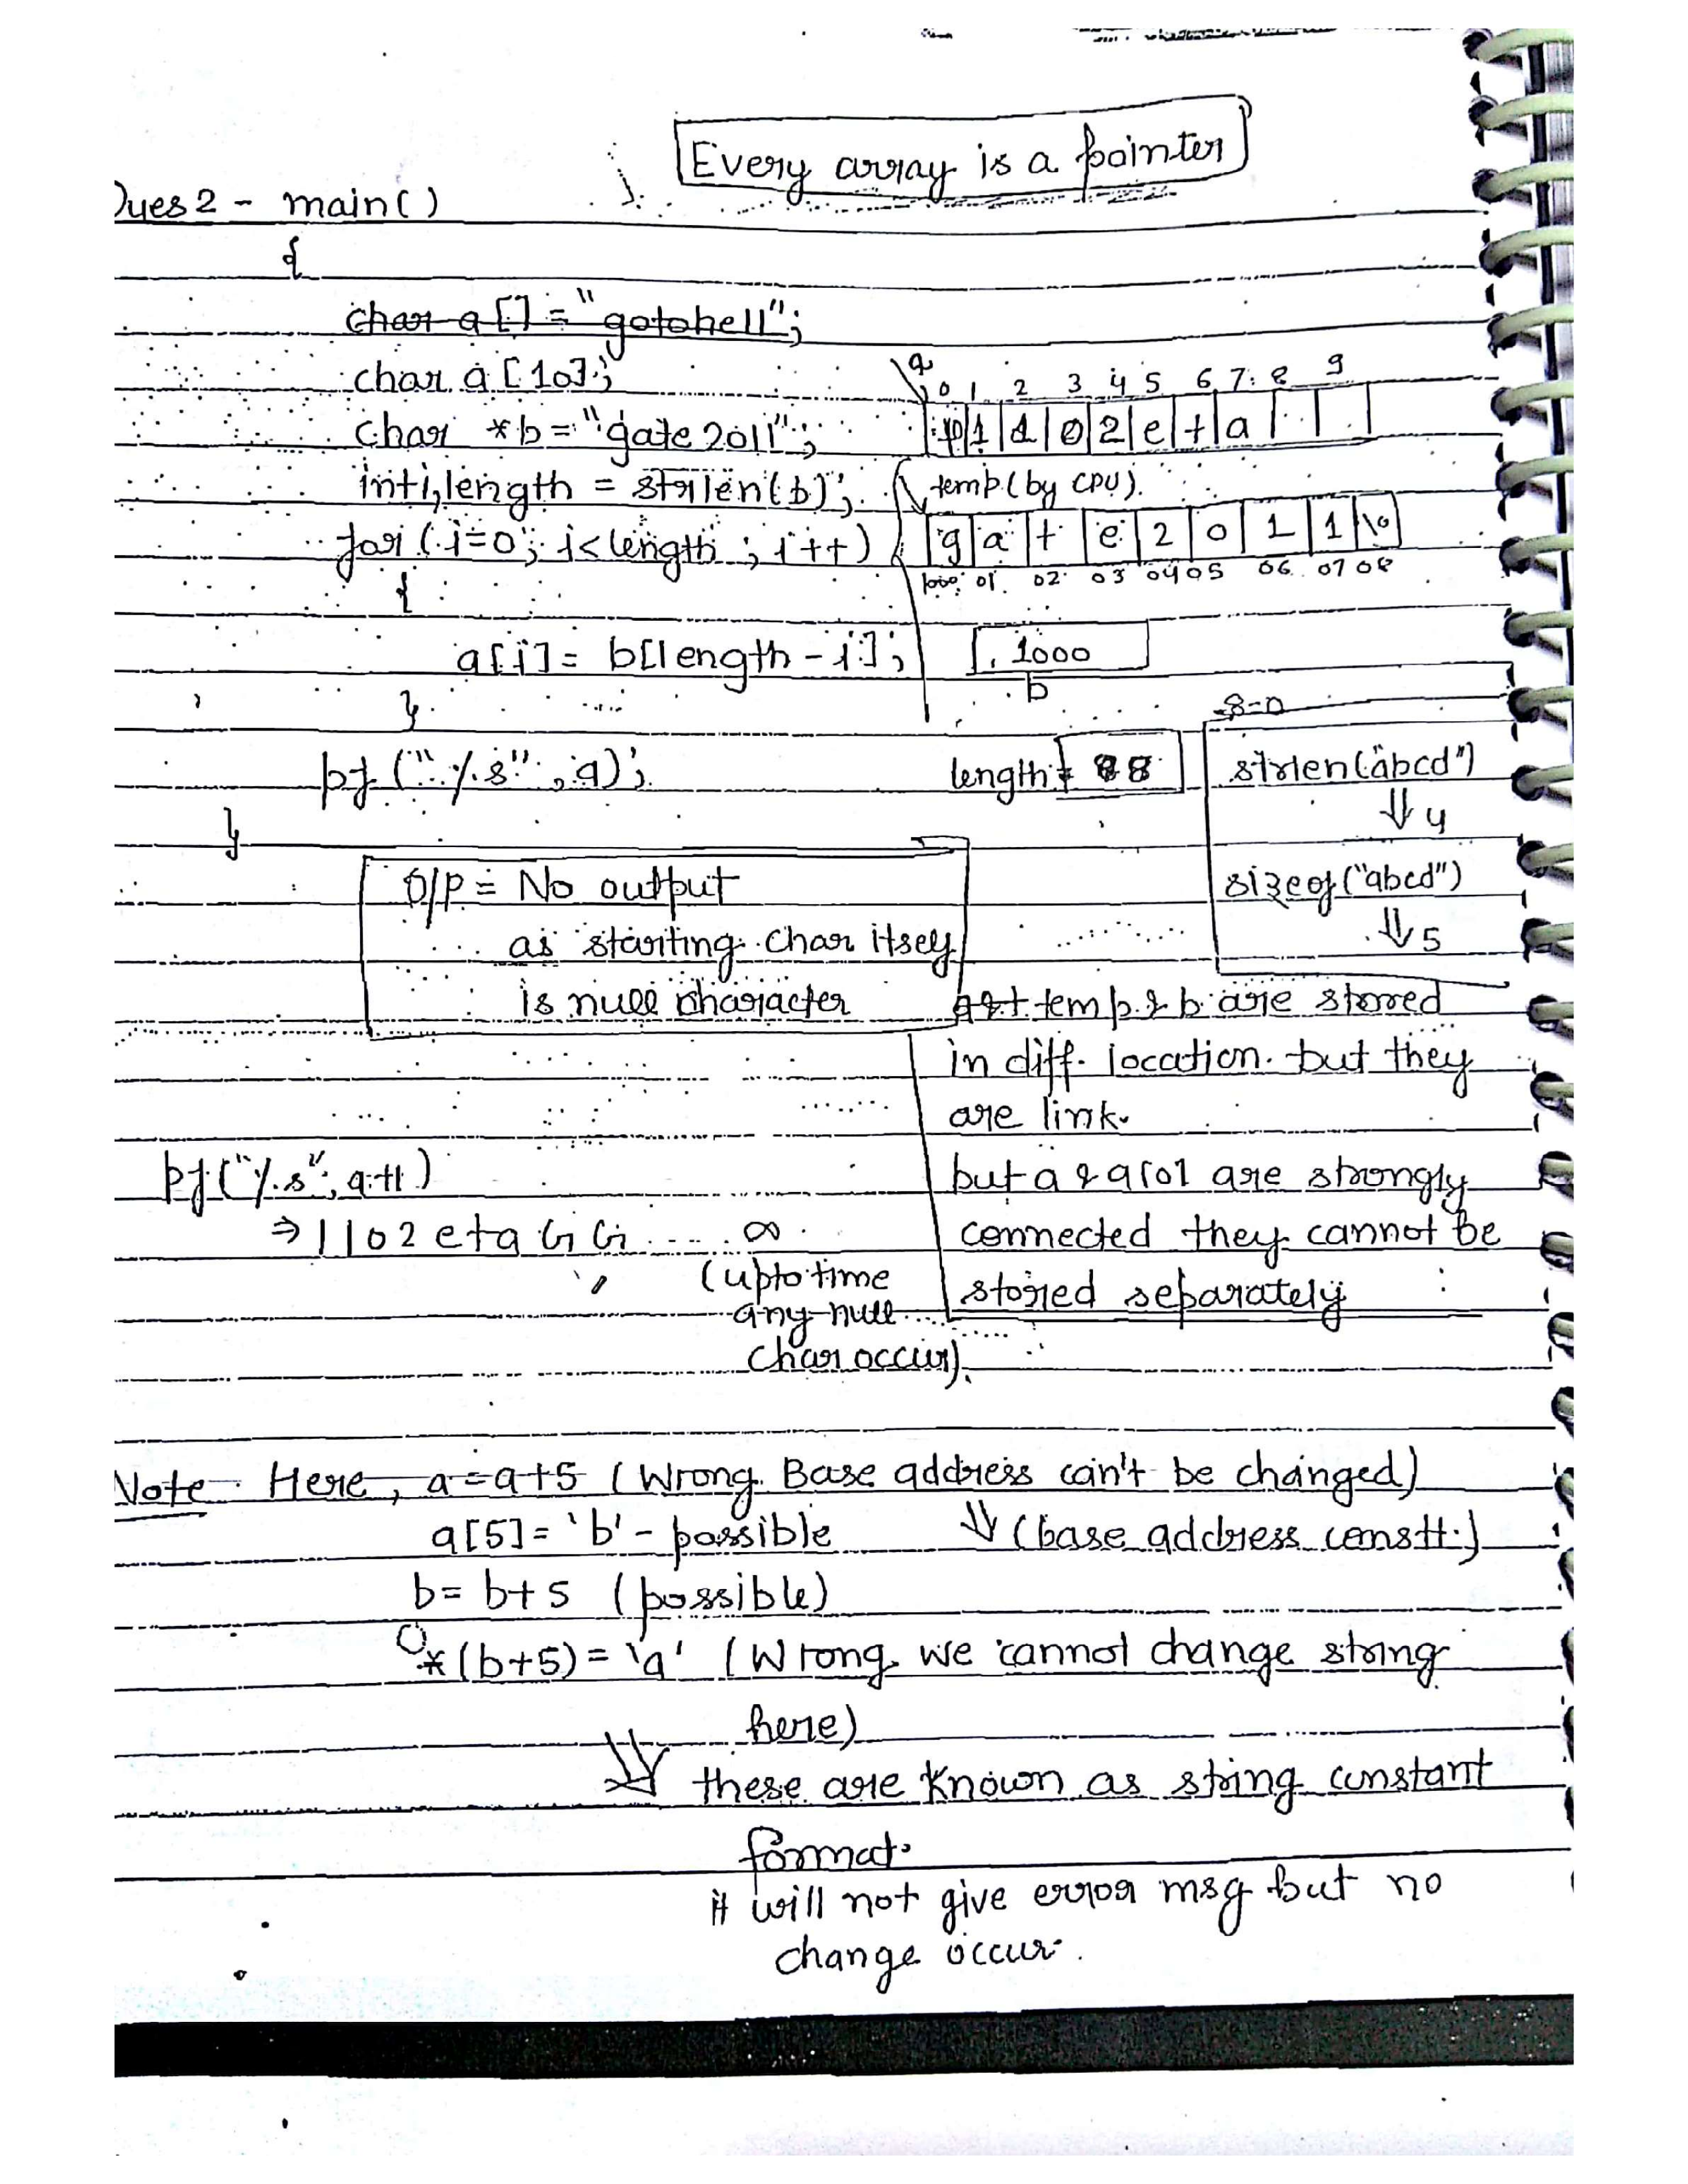 Every array is a pointer
Ques 2 - main()
{
char a[] = "gotohell";
char a[10];
char *b = "gate2011";
int i, length = strlen(b);
for (i=0; i<length; i++)
{
a[i] = b[length-i];
}
pf("%s", a);
}
a
0 1 2 3 4 5 6 7 8 9
\0 1 1 0 2 e t a
temp (by CPU).
g a t e 2 0 1 1 \0
1000 01 02 03 04 05 06 07 08
1000
b
length = 8
8-0
strlen("abcd")
⇓ 4
sizeof("abcd")
⇓ 5
O/P = No output
as starting char itself
is null character
temp & b are stored
in diff. location but they
are link.
but a & a[0] are strongly
connected they cannot be
stored separately
pf("%s", a+1)
⇒ 1102eta G G .... ∞
(upto time
any null
char occur).
Note - Here, a=a+5 (Wrong. Base address can't be changed)
a[5]='b' - possible ⇓ (base address constt.)
b = b+5 (possible)
*(b+5) = 'a' (Wrong. we cannot change string
here)
⇓ these are known as string constant
format.
it will not give error msg but no
change occur.